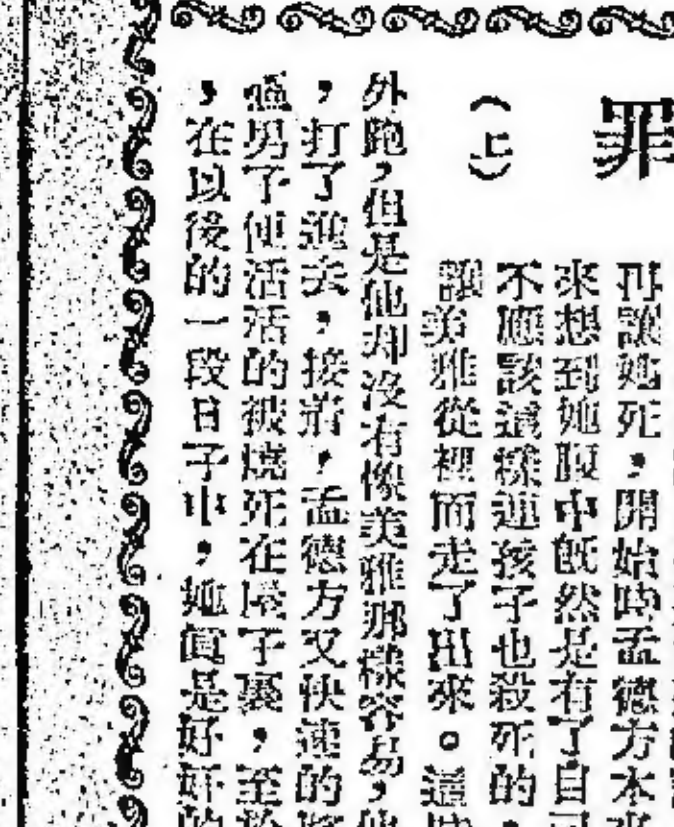 罪
（上）
再讓她死，開始時孟德方本來
來想到她腹中旣然是有了自己
不應該這樣連孩子也殺死的，
讓美雅從裡面走了出來。這時
外跑，但是他却沒有像美雅那樣容易，他
，打了進去，接着，孟德方又快速的
這男子便活活的被燒死在屋子裏，至於
，在以後的一段日子中，她眞是好好的